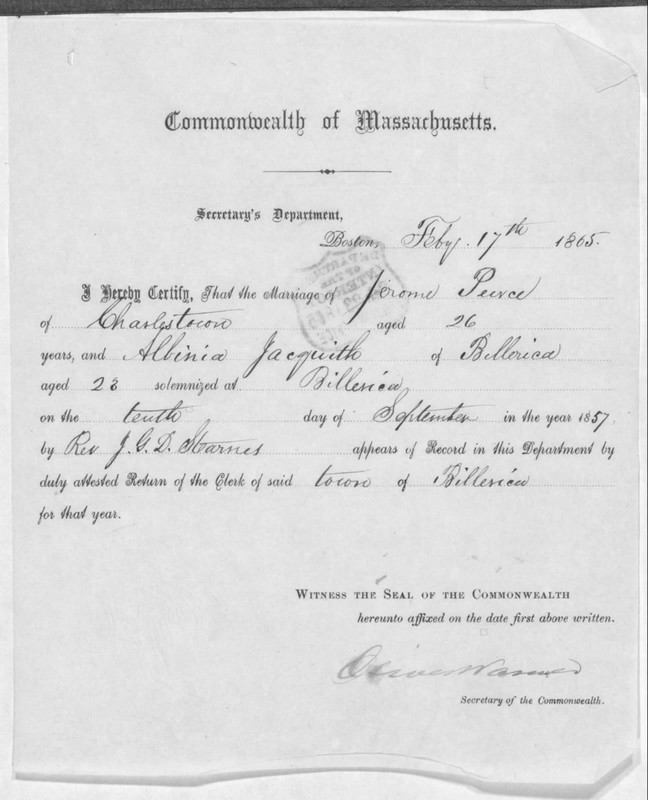 Commonwealth of Massachusetts.
Secretary's Department,
Boston, Feby. 17th 1865.
I Hereby Certify, That the Marriage of Jerome Peirce
of Charlestown aged 26
years, and Albinia Jacquith of Billerica
aged 23 solemnized at Billerica
on the tenth day of September in the year 1857,
by Rev J. G. D. Stearnes appears of Record in this Department by
duly attested Return of the Clerk of said town of Billerica
for that year.
WITNESS THE SEAL OF THE COMMONWEALTH
hereunto affixed on the date first above written.
Oliver Warner
Secretary of the Commonwealth.